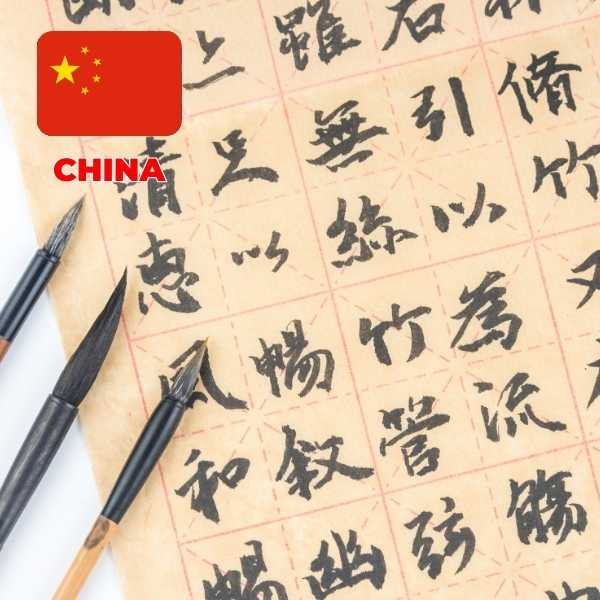 CHINA
脩竹又
右引以為流觴
雖無絲竹管弦
足以暢敘幽
清惠風和暢